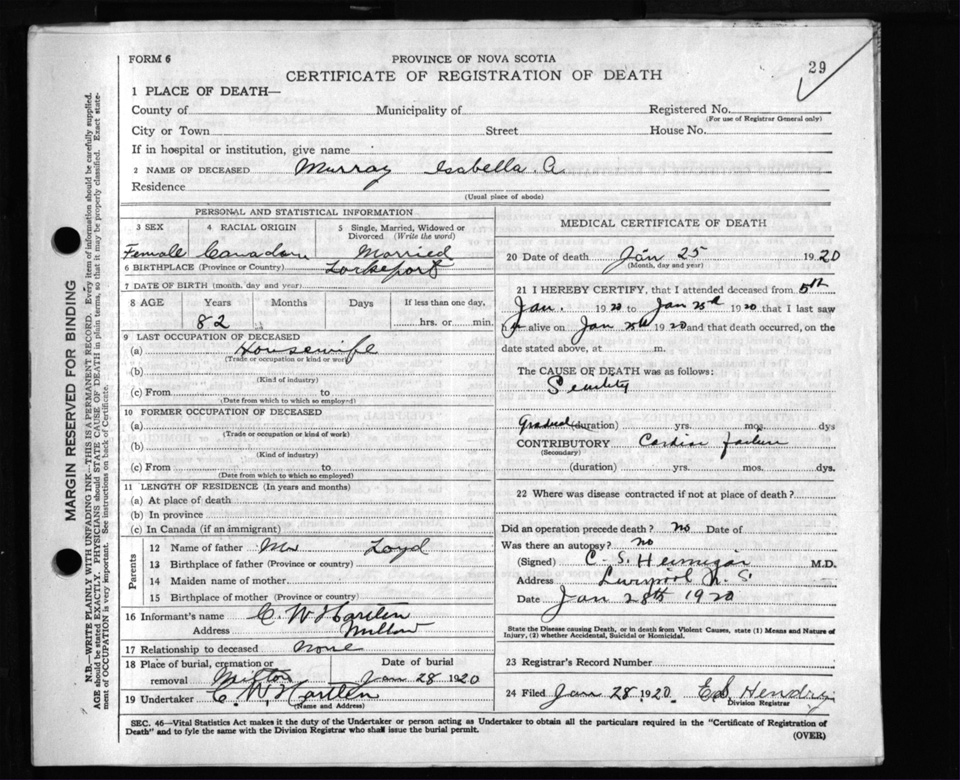 FORM 6
PROVINCE OF NOVA SCOTIA
CERTIFICATE OF REGISTRATION OF DEATH
29
1 PLACE OF DEATH—
County of Municipality of Registered No.
(For use of Registrar General only)
City or Town Street House No.
If in hospital or institution, give name
2 NAME OF DECEASED Murray Isabella A
Residence
(Usual place of abode)
PERSONAL AND STATISTICAL INFORMATION
3 SEX 4 RACIAL ORIGIN 5 Single, Married, Widowed or Divorced (Write the word)
Female Canadian Married
6 BIRTHPLACE (Province or Country) Lockeport
7 DATE OF BIRTH (month, day and year)
8 AGE Years Months Days If less than one day,
82 hrs. or min.
9 LAST OCCUPATION OF DECEASED
(a) Housewife
(Trade or occupation or kind or work)
(b)
(Kind of industry)
(c) From to
(Date from which to which so employed)
10 FORMER OCCUPATION OF DECEASED
(a)
(Trade or occupation or kind of work)
(b)
(Kind of industry)
(c) From to
(Date from which to which so employed)
11 LENGTH OF RESIDENCE (In years and months)
(a) At place of death
(b) In province
(c) In Canada (if an immigrant)
Parents
12 Name of father Mr Loyd
13 Birthplace of father (Province or country)
14 Maiden name of mother
15 Birthplace of mother (Province or country)
16 Informant's name C. W Hartlen
Address Milton
17 Relationship to deceased None
18 Place of burial, cremation or removal Milton Date of burial Jan 28 1920
19 Undertaker C. W. Hartlen
(Name and Address)
MEDICAL CERTIFICATE OF DEATH
20 Date of death Jan 25 1920
(Month, day and year)
21 I HEREBY CERTIFY, that I attended deceased from 5th
Jan. 1920 to Jan 25th 1920 that I last saw
alive on Jan 25th 1920 and that death occurred, on the
date stated above, at m.
The CAUSE OF DEATH was as follows:
Senility
Gradual (duration) yrs. mos. dys
CONTRIBUTORY Cardiac failure
(Secondary)
(duration) yrs. mos. dys.
22 Where was disease contracted if not at place of death?
Did an operation precede death? no Date of
Was there an autopsy? no
(Signed) C. S. M.D.
Address Liverpool N. S.
Date Jan 28th 1920
State the Disease causing Death, or in death from Violent Causes, state (1) Means and Nature of
Injury, (2) whether Accidental, Suicidal or Homicidal.
23 Registrar's Record Number
24 Filed Jan 28 1920 E. S. Hendry
Division Registrar
SEC. 46—Vital Statistics Act makes it the duty of the Undertaker or person acting as Undertaker to obtain all the particulars required in the "Certificate of Registration of
Death" and to fyle the same with the Division Registrar who shall issue the burial permit.
(OVER)
MARGIN RESERVED FOR BINDING
N.B.—WRITE PLAINLY WITH UNFADING INK—THIS IS A PERMANENT RECORD. Every item of information should be carefully supplied.
AGE should be stated EXACTLY. PHYSICIANS should STATE CAUSE OF DEATH in plain terms, so that it may be properly classified. Exact state-
ment of OCCUPATION is very important. See instructions on back of Certificate.